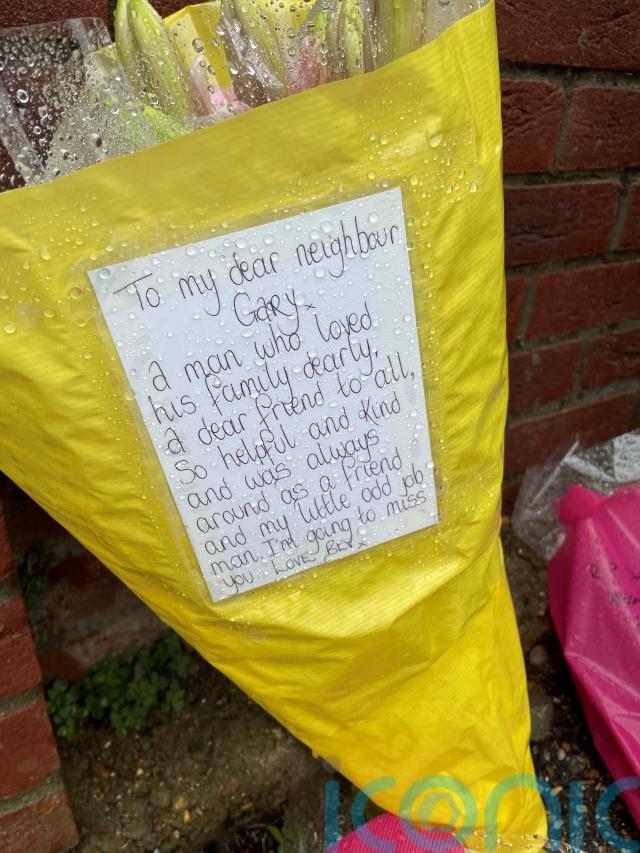 To my dear neighbour
Gary x
a man who loved
his family dearly,
a dear friend to all,
So helpful and kind
and was always
around as a friend
and my little odd job
man I'm going to miss
you. Love Bev x
R.I.P
iconic